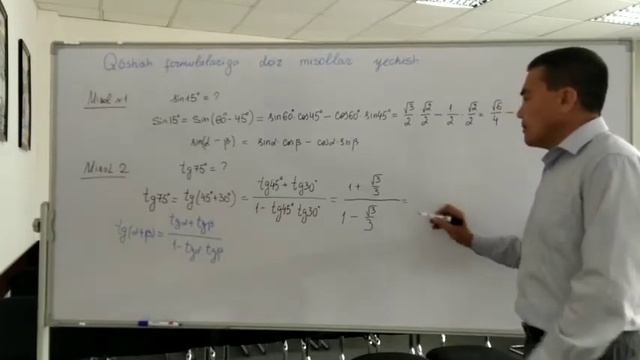 Qoshish formulalariga doir misollar yechish
Misol №1 sin15° = ?
sin15° = sin(60°-45°) = sin60°·cos45° - cos60°·sin45° = √3/2 · √2/2 - 1/2 · √2/2 = √6/4 -
sin(α-β) = sinα·cosβ - cosα·sinβ
Misol 2 tg75° = ?
tg75° = tg(45°+30°) = (tg45°+tg30°)/(1-tg45°·tg30°) = (1+√3/3)/(1-√3/3) =
tg(α+β) = (tgα+tgβ)/(1-tgα·tgβ)